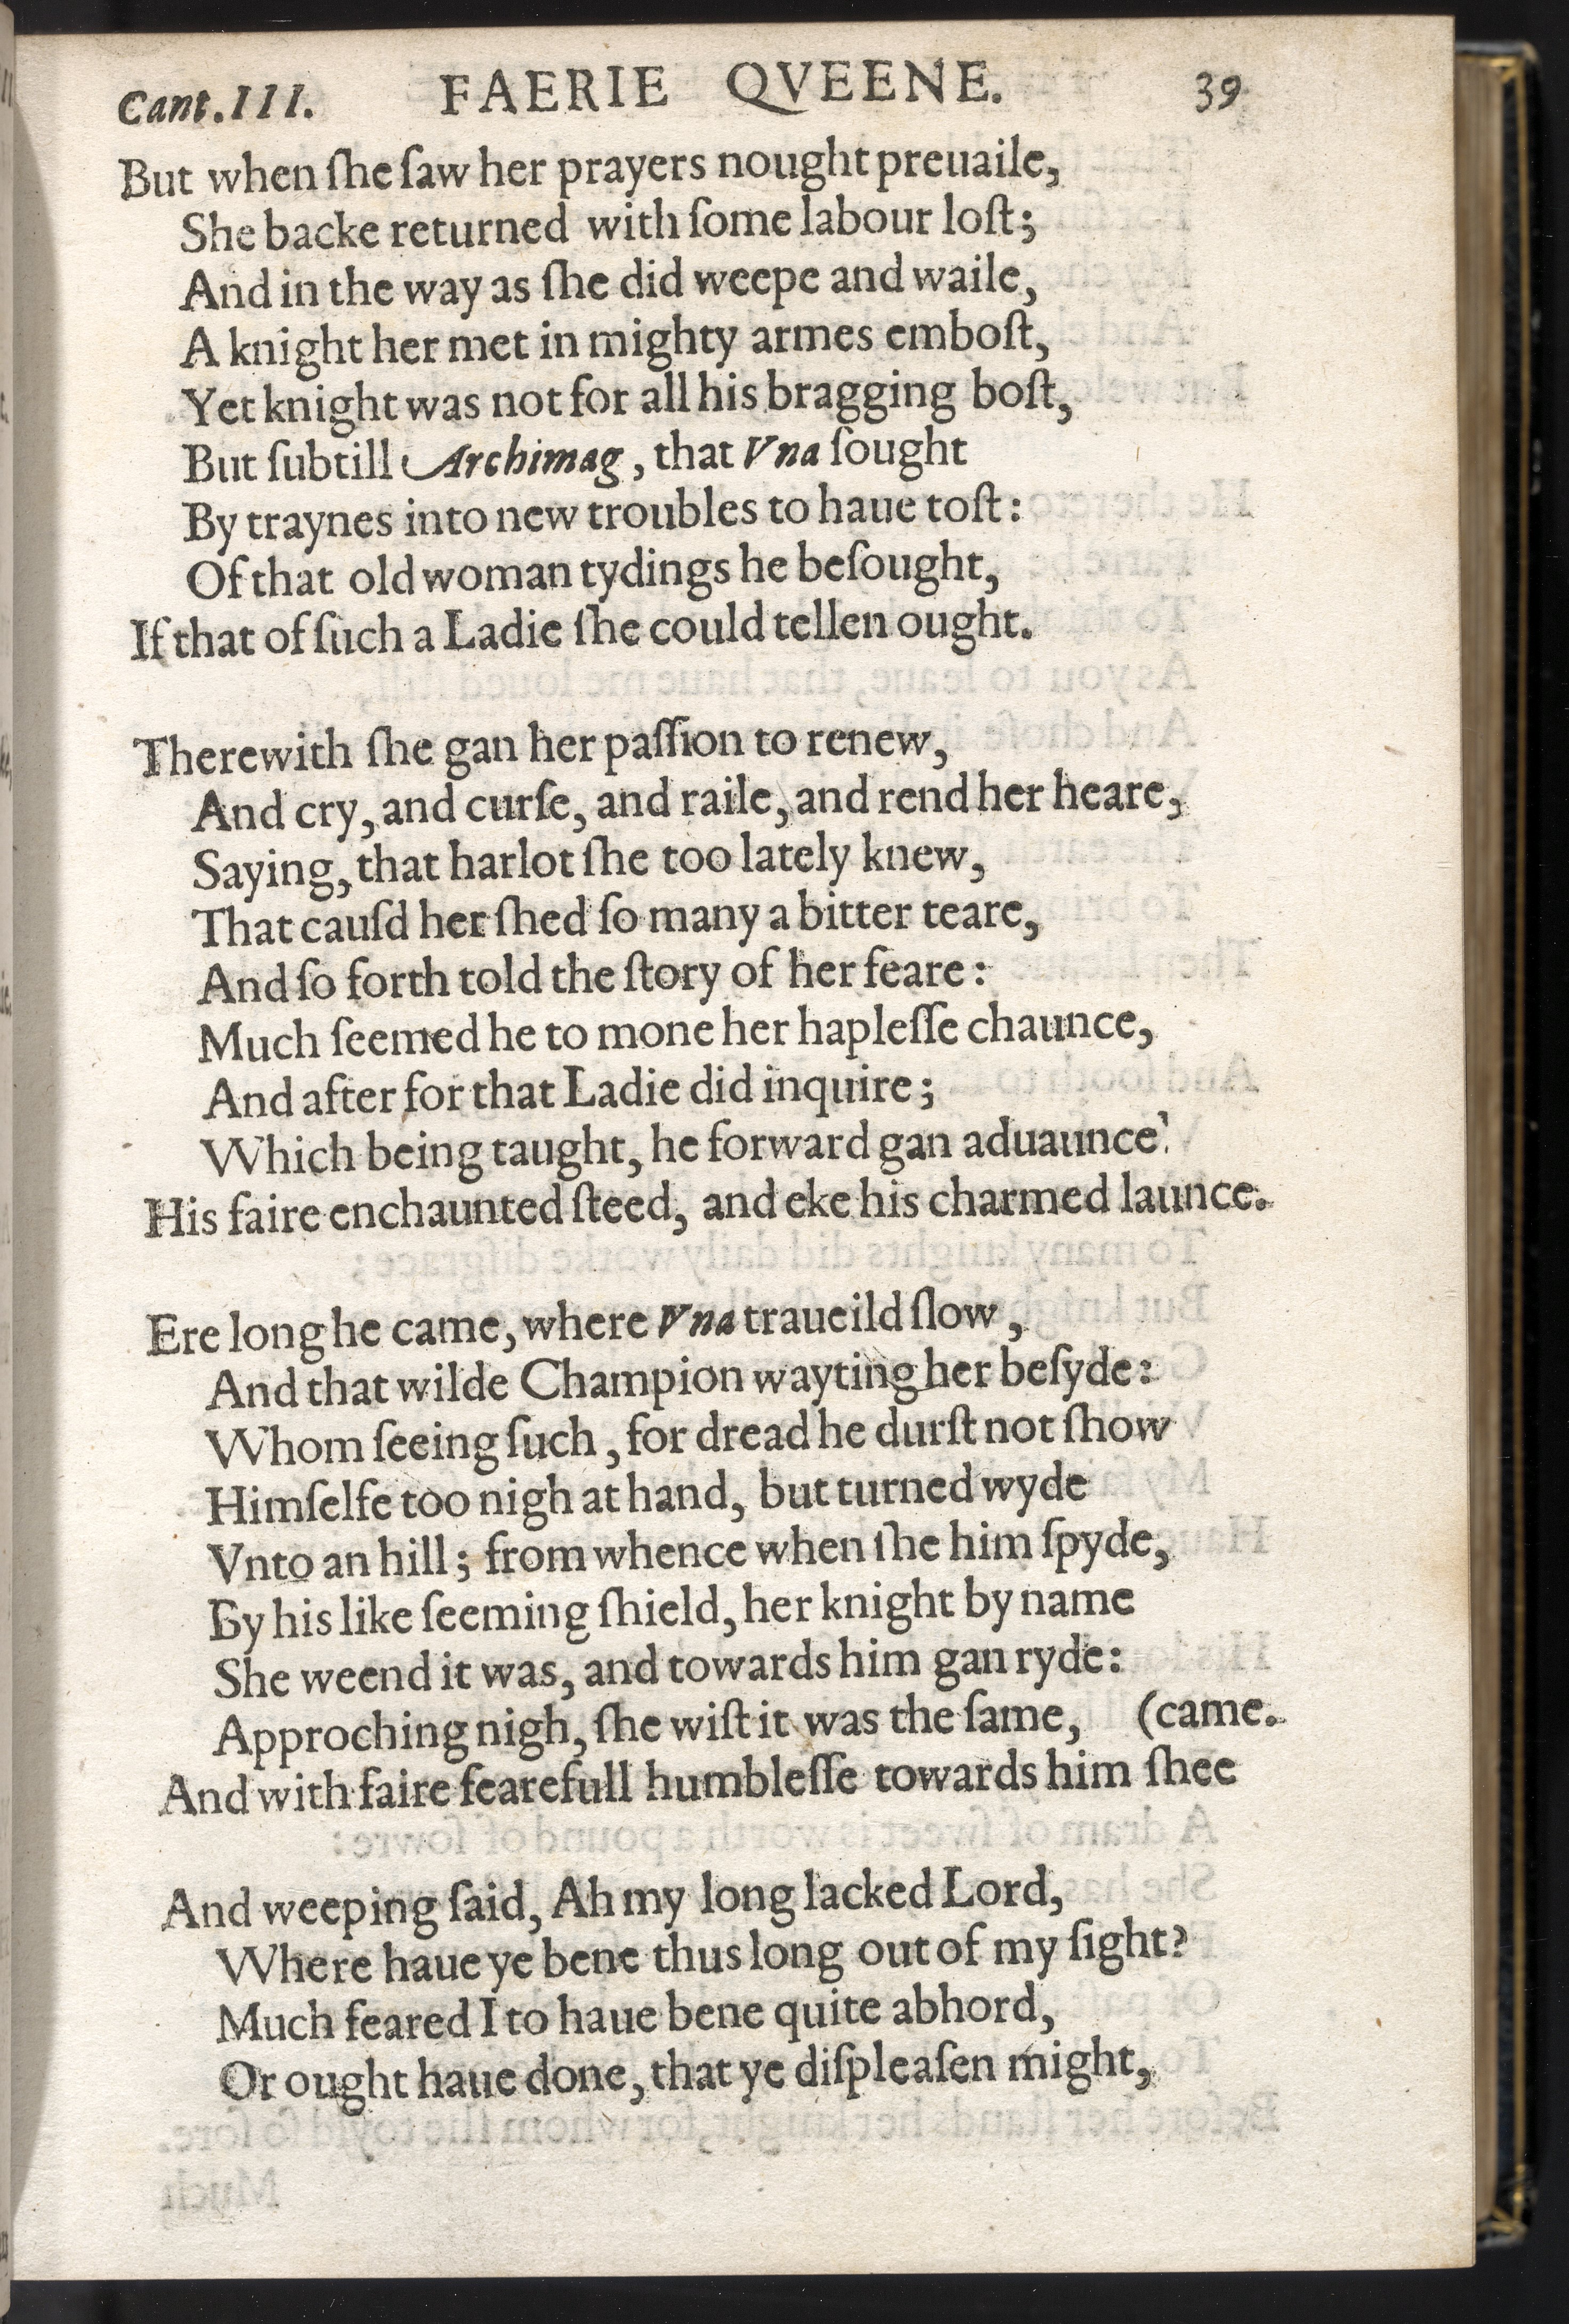 Cant. III. FAERIE QVEENE. 39
But when ſhe ſaw her prayers nought preuaile,
She backe returned with ſome labour loſt;
And in the way as ſhe did weepe and waile,
A knight her met in mighty armes emboſt,
Yet knight was not for all his bragging boſt,
But ſubtill Archimag, that Vna ſought
By traynes into new troubles to haue toſt:
Of that old woman tydings he beſought,
If that of ſuch a Ladie ſhe could tellen ought.
Therewith ſhe gan her paſſion to renew,
And cry, and curſe, and raile, and rend her heare,
Saying, that harlot ſhe too lately knew,
That cauſd her ſhed ſo many a bitter teare,
And ſo forth told the ſtory of her feare:
Much ſeemed he to mone her hapleſſe chaunce,
And after for that Ladie did inquire;
Which being taught, he forward gan aduaunce
His faire enchaunted ſteed, and eke his charmed launce.
Ere long he came, where Vna traueild ſlow,
And that wilde Champion wayting her beſyde:
Whom ſeeing ſuch, for dread he durſt not ſhow
Himſelfe too nigh at hand, but turned wyde
Vnto an hill; from whence when ſhe him ſpyde,
By his like ſeeming ſhield, her knight by name
She weend it was, and towards him gan ryde:
Approching nigh, ſhe wiſt it was the ſame, (came.
And with faire fearefull humbleſſe towards him ſhee
And weeping ſaid, Ah my long lacked Lord,
Where haue ye bene thus long out of my ſight?
Much feared I to haue bene quite abhord,
Or ought haue done, that ye diſpleaſen might,